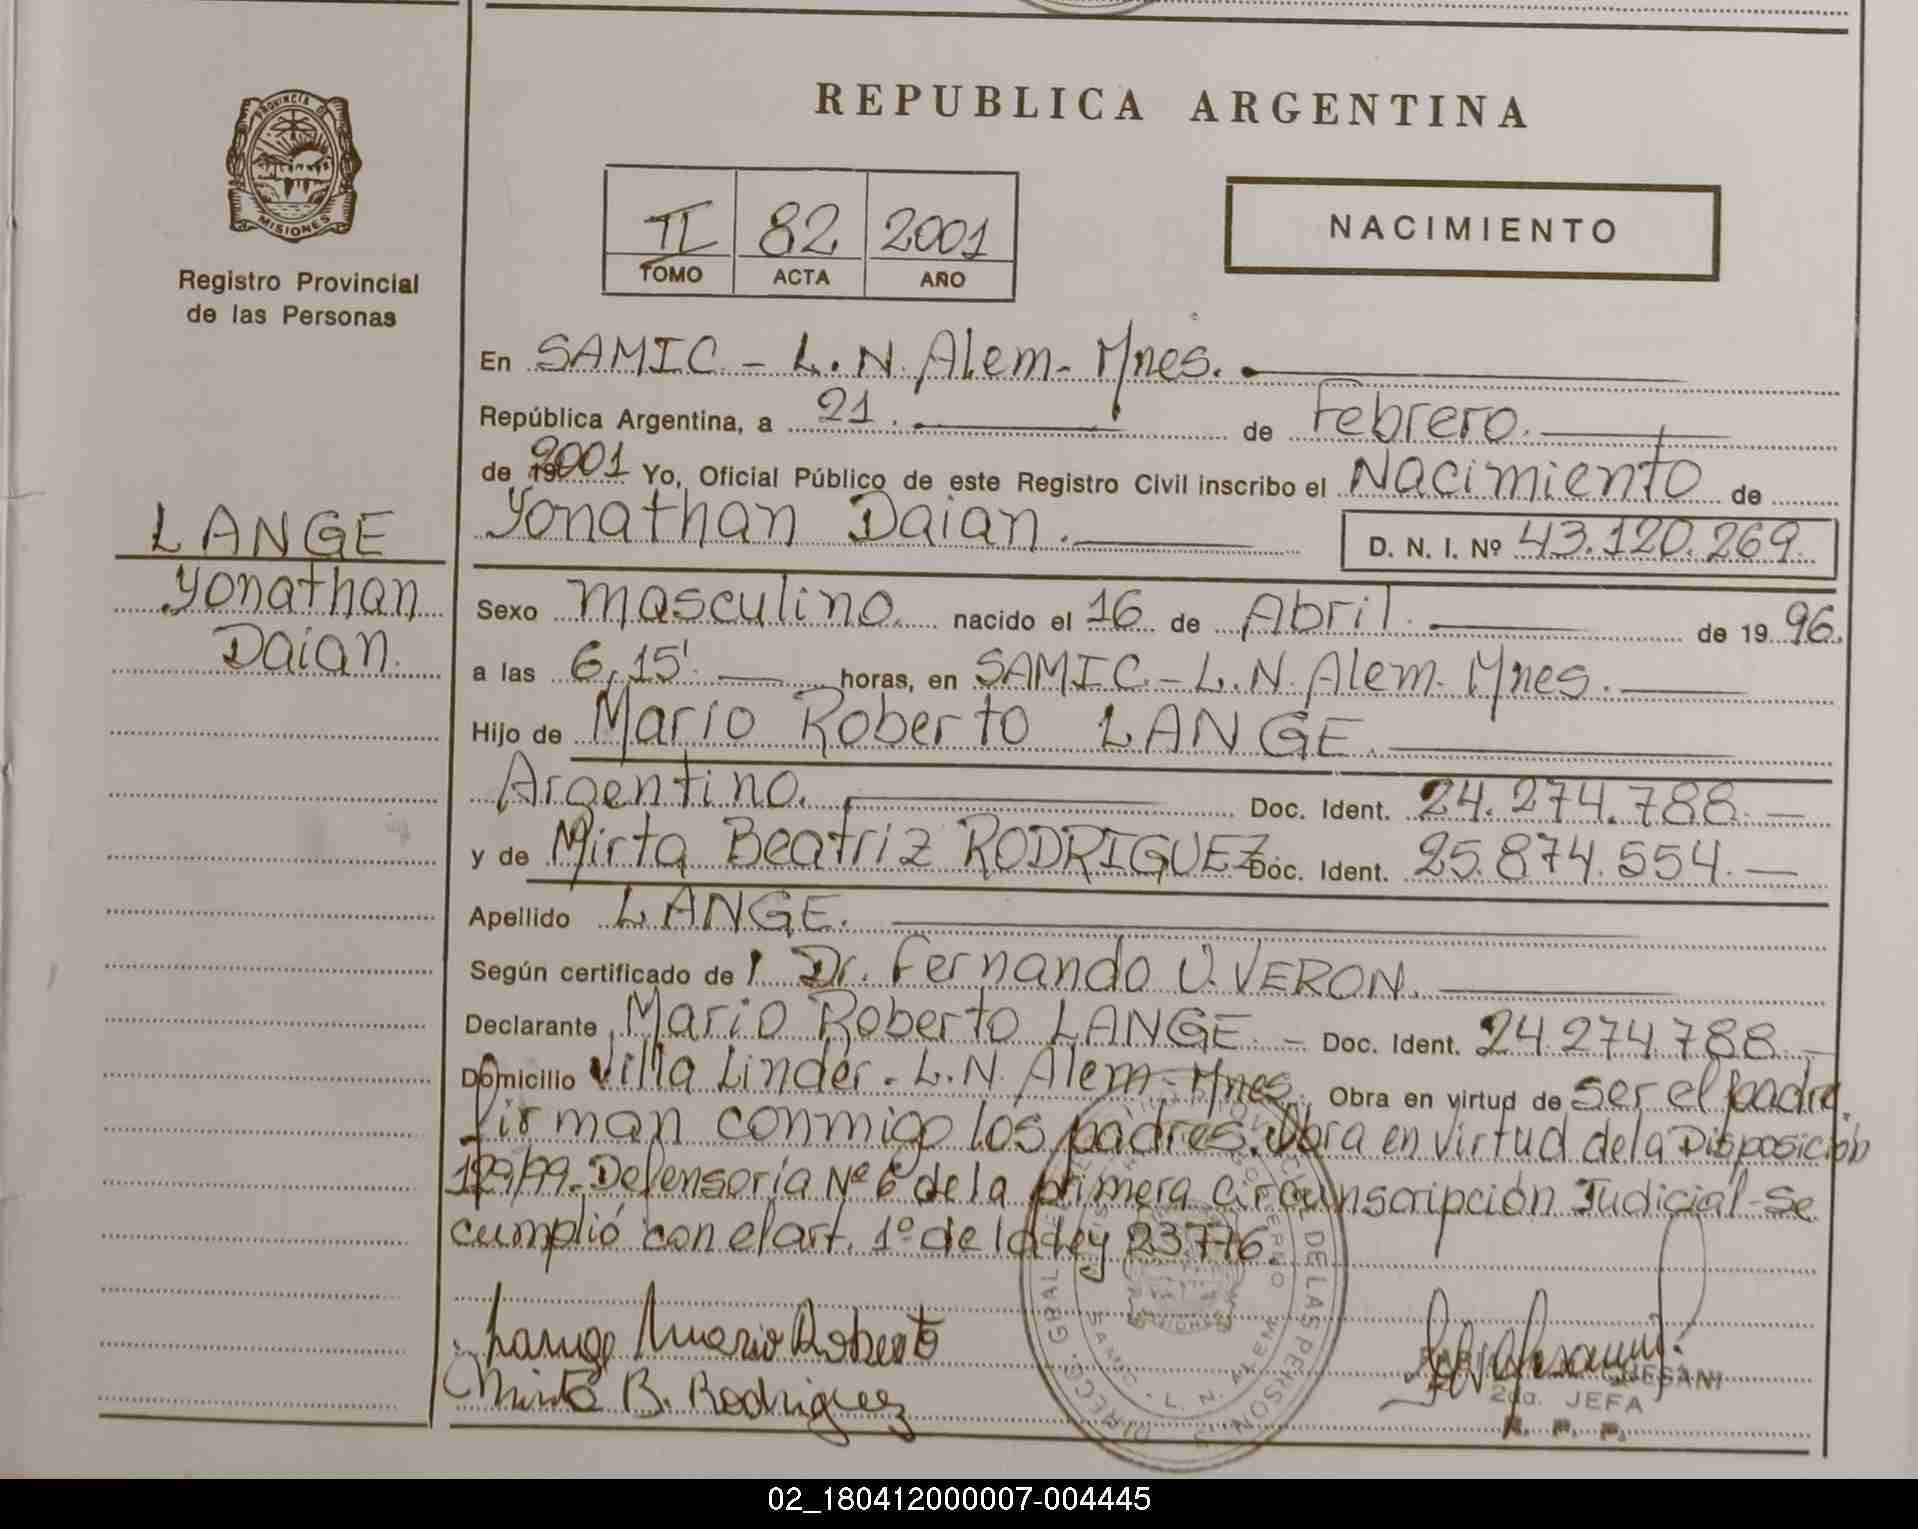 PROVINCIA DE
MISIONES
Registro Provincial
de las Personas
LANGE
Yonathan
Daian.
REPUBLICA ARGENTINA
II 82 2001
TOMO ACTA AÑO
NACIMIENTO
En SAMIC - L.N. Alem - Mnes.
República Argentina, a 21. de Febrero.
de 19 2001 Yo, Oficial Público de este Registro Civil inscribo el Nacimiento de
Yonathan Daian. D. N. I. Nº 43.120.269.
Sexo masculino. nacido el 16 de Abril. de 19 96.
a las 6,15'. horas, en SAMIC - L.N. Alem - Mnes.
Hijo de Mario Roberto LANGE.
Argentino. Doc. Ident. 24.274.788.-
y de Mirta Beatriz RODRIGUEZ Doc. Ident. 25.874.554.-
Apellido LANGE.
Según certificado de Dr. Fernando V. VERON.
Declarante Mario Roberto LANGE. - Doc. Ident. 24.274.788.-
Domicilio Villa Linder - L.N. Alem - Mnes. Obra en virtud de ser el padre.
firman conmigo los padres. Obra en virtud de la Disposición
129/99 - Defensoría Nº 6 de la primera Circunscripción Judicial - Se
cumplió con el art. 1º de la ley 23776.
Lange Mario Roberto
Mirta B. Rodriguez
2da. JEFA
R. P. P.
02_180412000007-004445